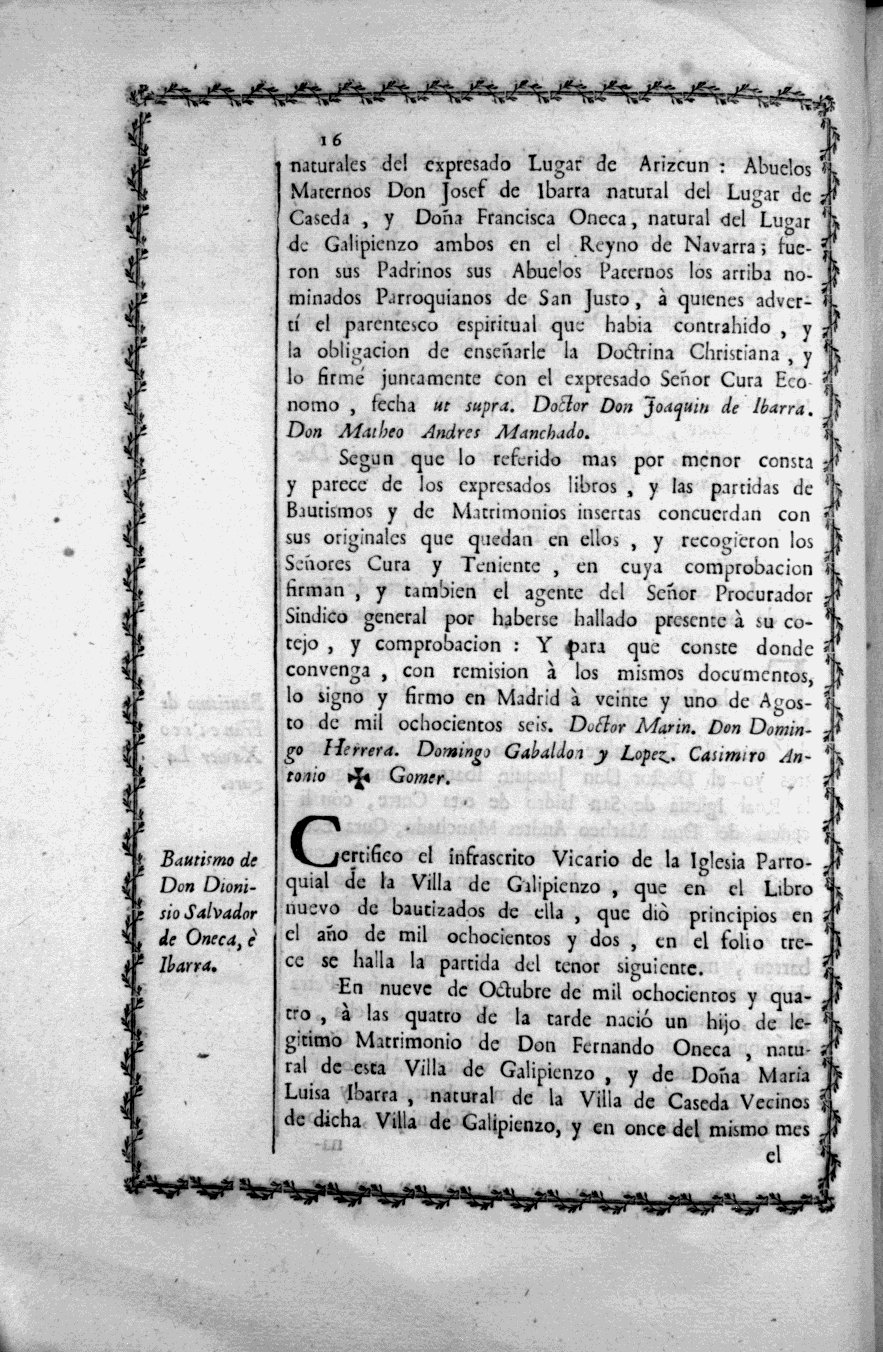 16
naturales del expresado Lugar de Arizcun : Abuelos
Maternos Don Josef de Ibarra natural del Lugar de
Caseda , y Doña Francisca Oneca, natural del Lugar
de Galipienzo ambos en el Reyno de Navarra; fue-
ron sus Padrinos sus Abuelos Paternos los arriba no-
minados Parroquianos de San Justo, à quienes adver-
tí el parentesco espiritual que habia contrahido , y
la obligacion de enseñarle la Doctrina Christiana , y
lo firmé juntamente con el expresado Señor Cura Eco-
nomo , fecha ut supra. Doctor Don Joaquin de Ibarra.
Don Matheo Andres Manchado.
Segun que lo referido mas por menor consta
y parece de los expresados libros , y las partidas de
Bautismos y de Matrimonios insertas concuerdan con
sus originales que quedan en ellos , y recogieron los
Señores Cura y Teniente , en cuya comprobacion
firman , y tambien el agente del Señor Procurador
Sindico general por haberse hallado presente à su co-
tejo , y comprobacion : Y para que conste donde
convenga , con remision à los mismos documentos,
lo signo y firmo en Madrid à veinte y uno de Agos-
to de mil ochocientos seis. Doctor Marin. Don Domin-
go Herrera. Domingo Gabaldon y Lopez. Casimiro An-
tonio ✠ Gomer.
Bautismo de
Don Dioni-
sio Salvador
de Oneca, è
Ibarra.
Certifico el infrascrito Vicario de la Iglesia Parro-
quial de la Villa de Galipienzo , que en el Libro
nuevo de bautizados de ella , que diò principios en
el año de mil ochocientos y dos , en el folio tre-
ce se halla la partida del tenor siguiente.
En nueve de Octubre de mil ochocientos y qua-
tro , à las quatro de la tarde nació un hijo de le-
gitimo Matrimonio de Don Fernando Oneca , natu-
ral de esta Villa de Galipienzo , y de Doña María
Luisa Ibarra , natural de la Villa de Caseda Vecinos
de dicha Villa de Galipienzo, y en once del mismo mes
el